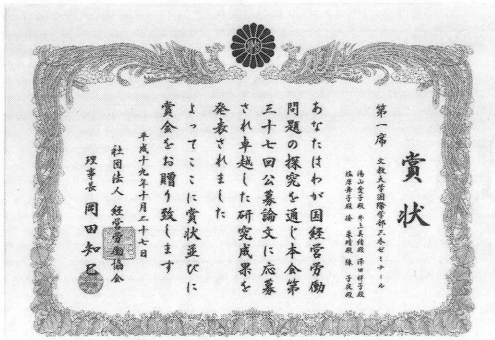 賞状
第一席
文教大学国際学部三木ゼミナール
湯山愛子殿 井上美緒殿 澤田祥子殿
あなたはわが国経営労働
問題の探究を通じ本会第
三十七回公募論文に応募
され卓越した研究成果を
発表されました
よってここに賞状並びに
賞金をお贈り致します
平成十九年十月二十七日
社団法人 経営労働協会
理事長 岡田知巳